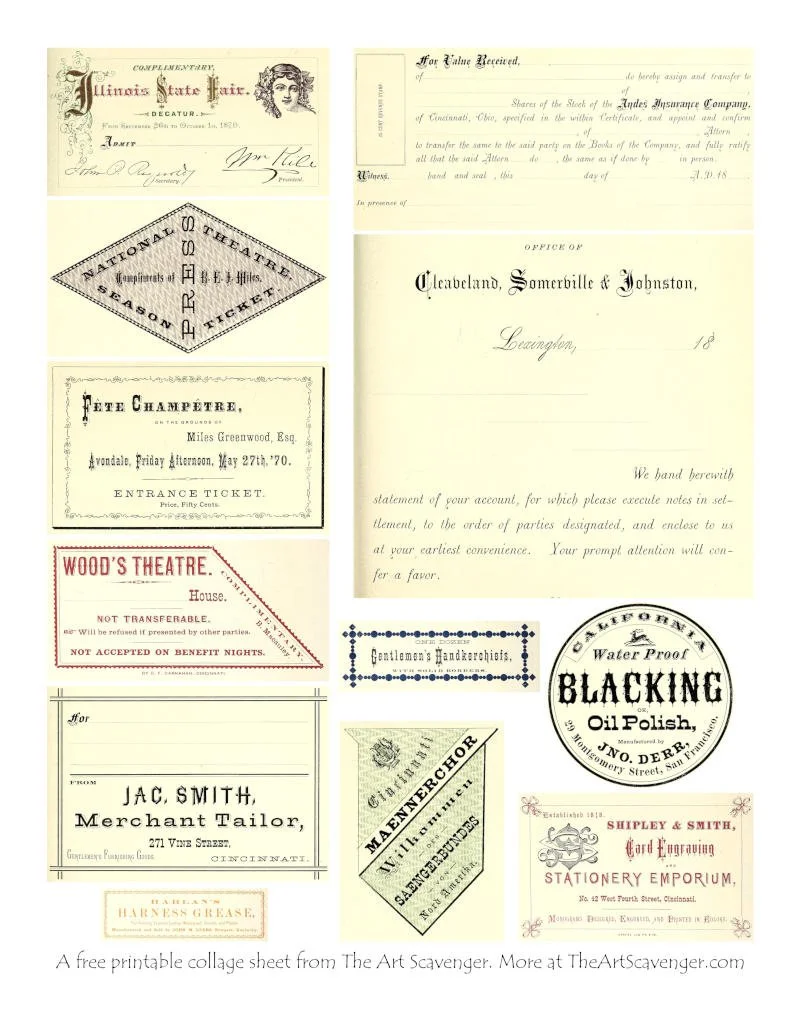 COMPLIMENTARY,
Illinois State Fair.
DECATUR.
From September 26th to October 1st, 1870.
Admit
John P. Reynolds
Secretary.
Wm Kile
President.
NATIONAL THEATRE.
PRESS
Compliments of R. E. J. Miles.
SEASON TICKET.
FÊTE CHAMPÊTRE,
ON THE GROUNDS OF
Miles Greenwood, Esq.
Avondale, Friday Afternoon, May 27th, '70.
ENTRANCE TICKET.
Price, Fifty Cents.
WOOD'S THEATRE.
House.
COMPLIMENTARY.
B. Macauley.
NOT TRANSFERABLE.
Will be refused if presented by other parties.
NOT ACCEPTED ON BENEFIT NIGHTS.
For
FROM
JAC. SMITH,
Merchant Tailor,
271 Vine Street,
Gentlemen's Furnishing Goods.
CINCINNATI.
HARLAN'S
HARNESS GREASE,
For Value Received,
of do hereby assign and transfer to
of
Shares of the Stock of the Andes Insurance Company,
of Cincinnati, Ohio, specified in the within Certificate, and appoint and confirm
, of Attorn ,
to transfer the same to the said party on the Books of the Company, and fully ratify
all that the said Attorn do , the same as if done by in person.
Witness, hand and seal , this day of A.D. 18
In presence of
OFFICE OF
Cleaveland, Somerville & Johnston,
Lexington, 18
We hand herewith
statement of your account, for which please execute notes in set-
tlement, to the order of parties designated, and enclose to us
at your earliest convenience. Your prompt attention will con-
fer a favor.
ONE DOZEN
Gentlemen's Handkerchiefs,
WITH SOLID BORDERS.
CALIFORNIA
Water Proof
BLACKING
OR,
Oil Polish,
Manufactured by
JNO. DERR,
29 Montgomery Street, San Francisco.
Cincinnati
MAENNERCHOR
Willkommen
SAENGERBUNDES
VON
Nord Amerika.
Established 1818.
SHIPLEY & SMITH,
Card Engraving
AND
STATIONERY EMPORIUM,
No. 42 West Fourth Street, Cincinnati.
Monograms Designed, Engraved, and Printed in Colors.
A free printable collage sheet from The Art Scavenger. More at TheArtScavenger.com